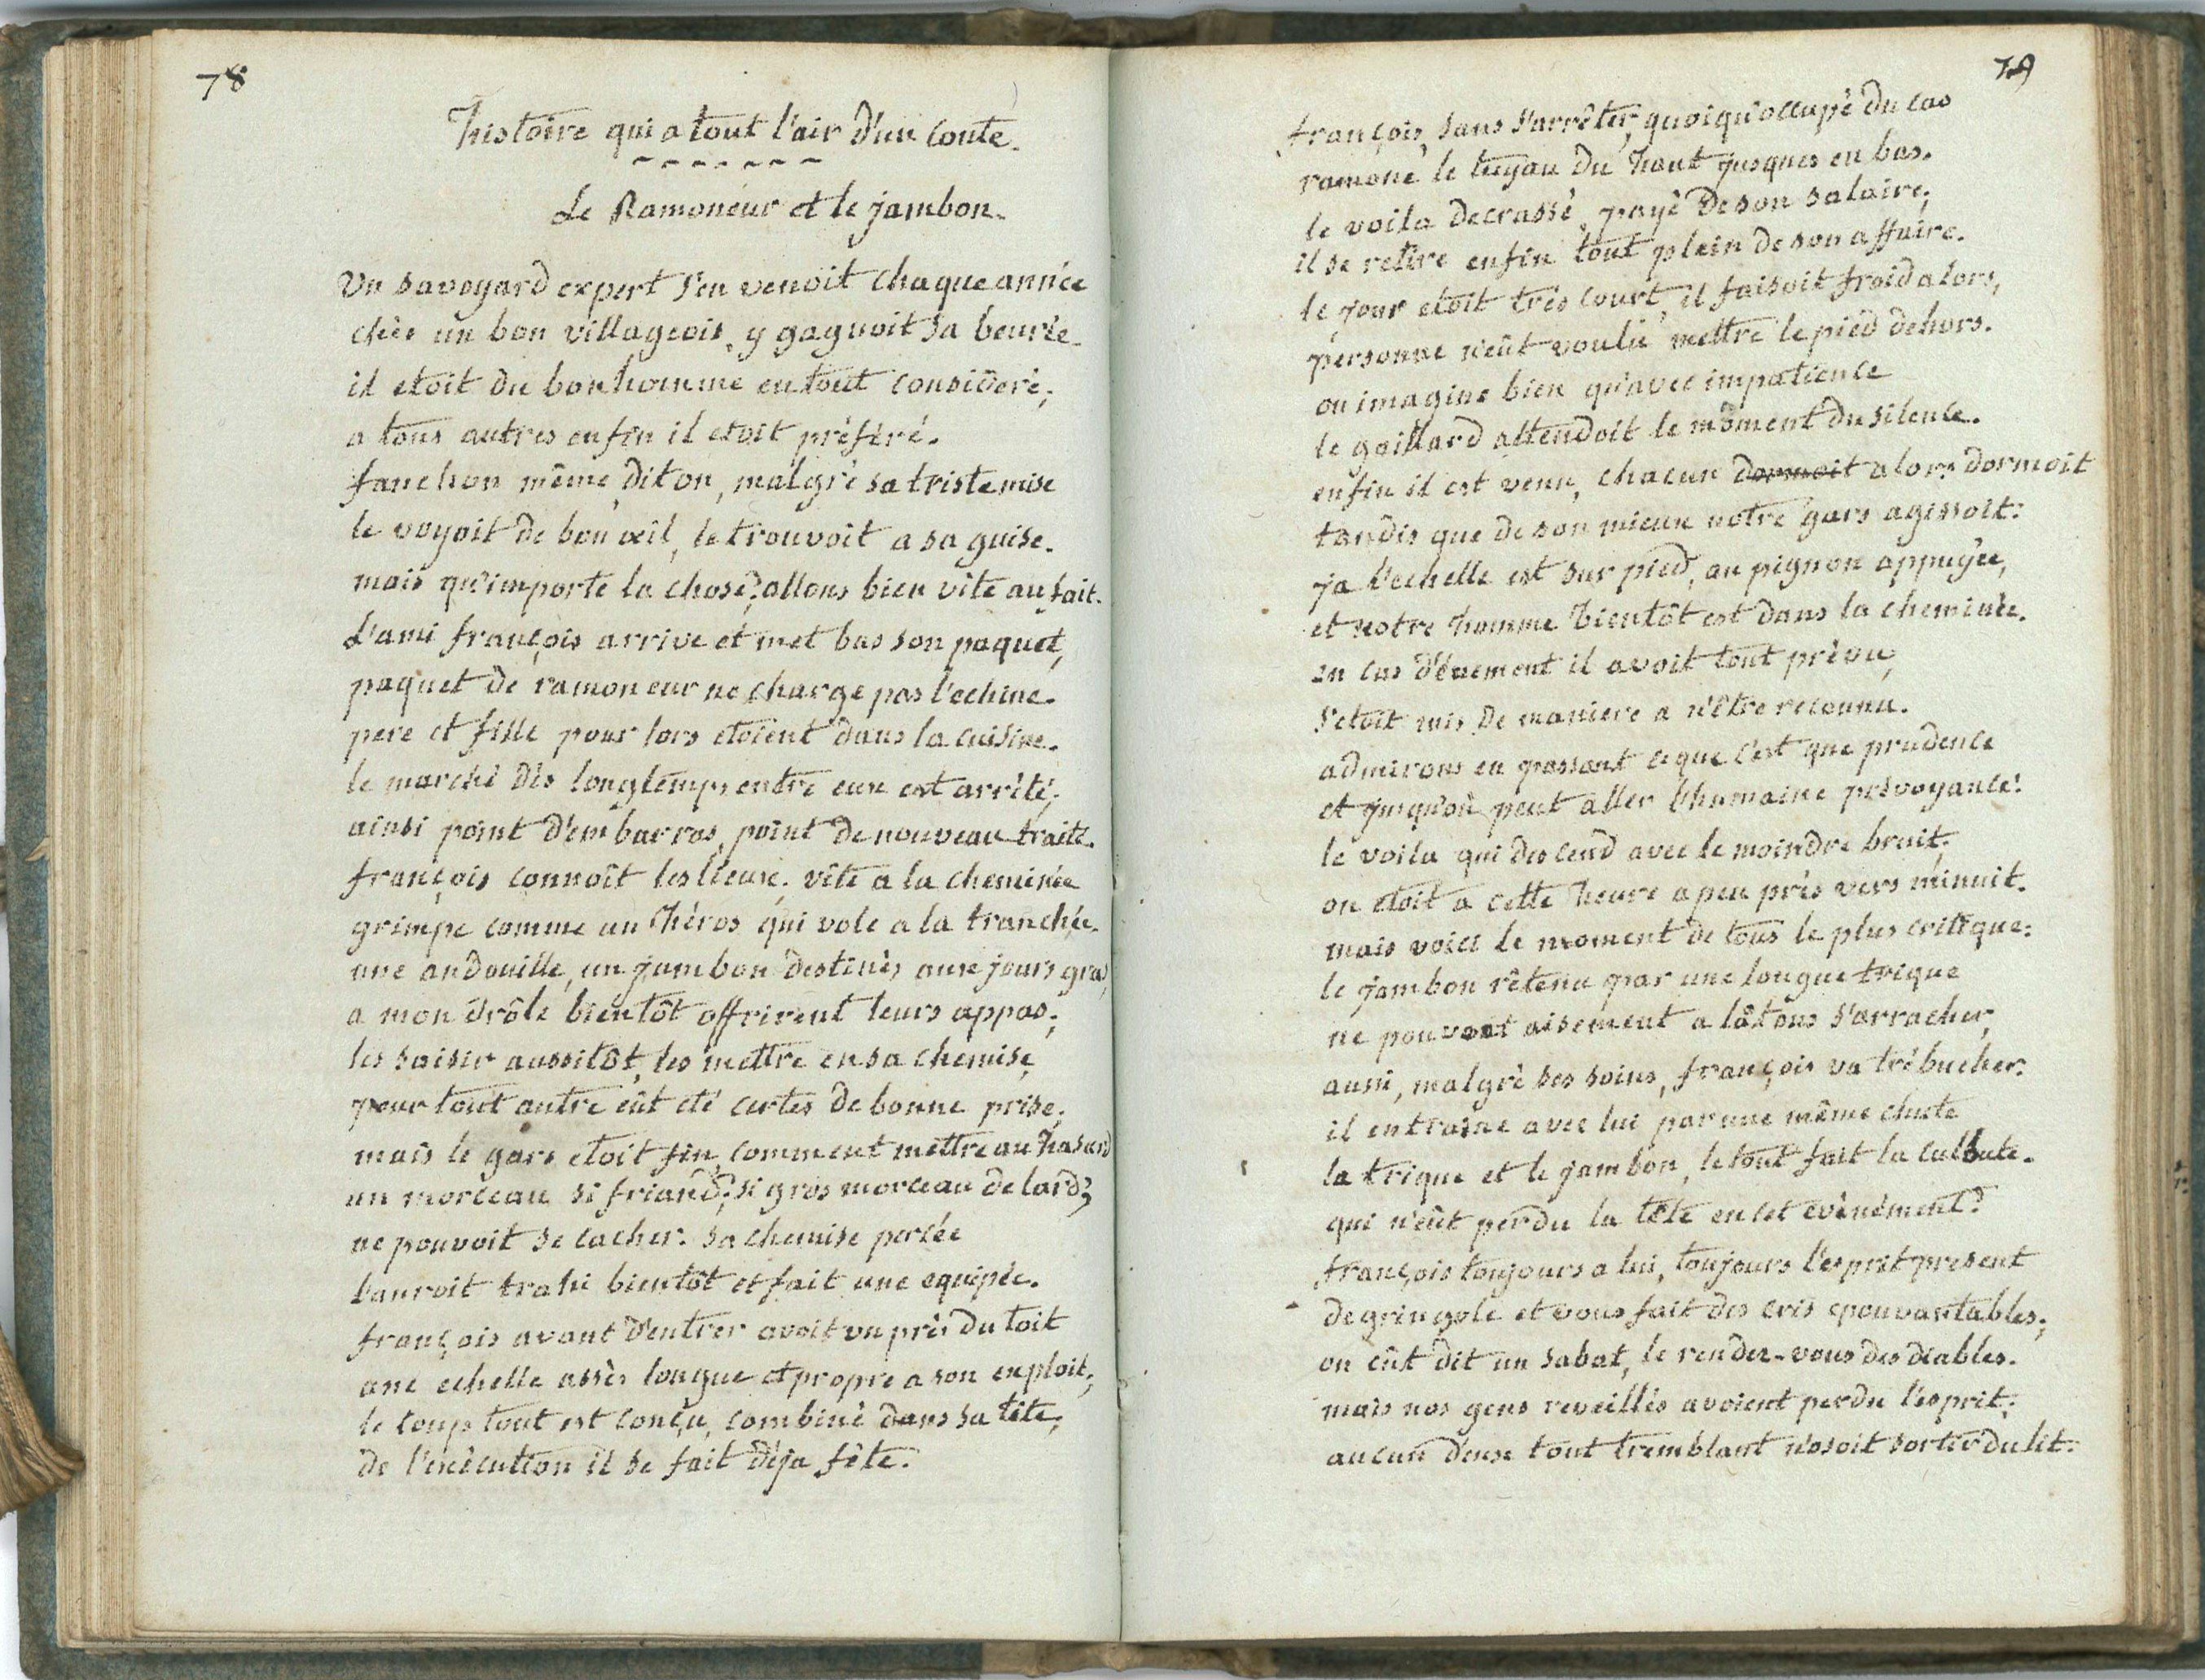 78
histoire qui a tout l'air d'un conte.
Le Ramoneur et le jambon.
Un savoyard expert s'en venoit chaque année
chès un bon villageois, y gagnoit sa beurée.
il etoit du bonhomme en tout consideré;
a tous autres enfin il etoit préféré.
fanchon même, dit on, malgré sa triste mise
le voyoit de bon œil, le trouvoit a sa guise.
mais qu'importe la chose? allons bien vîte au fait.
L'ami françois arrive et met bas son paquet,
paquet de ramoneur ne charge pas l'echine.
pere et fille pour lors etoient dans la cuisine.
le marché dès longtemps entre eux est arrêté;
ainsi point d'embarras, point de nouveau traité.
françois connoît les lieux; vîte a la cheminée
grimpe comme un héros qui vole a la tranchée.
une andouille, un jambon destinés aux jours gras
a mon drôle bientôt offrirent leurs appas;
les saisir aussitôt, les mettre en sa chemise,
pour tout autre eût eté certes de bonne prise;
mais le gars etoit fin, comment mettre au hasard
un morceau si friand? si gros morceau de lard?
ne pouvoit se cacher. sa chemise percée
l'auroit trahi bientôt et fait une equipée.
françois avant d'entrer avoit vu près du toit
une echelle assès longue et propre a son exploit;
le coup tout est conçu, combiné dans sa tête;
de l'exécution il se fait déja fête.
79
françois, sans s'arrêter, quoiqu'occupé du cas
ramone le tuyau du haut jusques en bas.
le voila decrassé, payé de son salaire;
il se retire enfin tout plein de son affaire.
le jour etoit très court, il faisoit froid alors,
personne n'eût voulu mettre le pied dehors.
on imagine bien qu'avec impatience
le gaillard attendoit le moment du silence.
enfin il est venu, chacun dormoit alors dormoit
tandis que de son mieux notre gars agissoit:
ja l'echelle est sur pied, au pignon appuyée,
et notre homme bientôt est dans la cheminée.
en cas d'évement il avoit tout prévu,
s'etoit mis de maniere a n'être reconnu.
admirons en passant ce que c'est que prudence
et jusqu'où peut aller l'humaine prévoyance!
le voila qui descend avec le moindre bruit;
on etoit a cette heure a peu près vers minuit.
mais voici le moment de tous le plus critique:
le jambon retenu par une longue trique
ne pouvant aisement a tâtons s'arracher,
aussi, malgré ses soins, françois va trébucher:
il entraine avec lui par une même chute
la trique et le jambon, le tout fait la culbute.
qui n'eût perdu la tête en cet évènément?
françois toujours a lui, toujours l'esprit present
degringole et vous fait des cris epouvantables;
on eût dit un sabat, le rendez-vous des diables.
mais nos gens reveillés avoient perdu l'esprit;
aucun d'eux tout tremblant n'osoit sortir du lit.